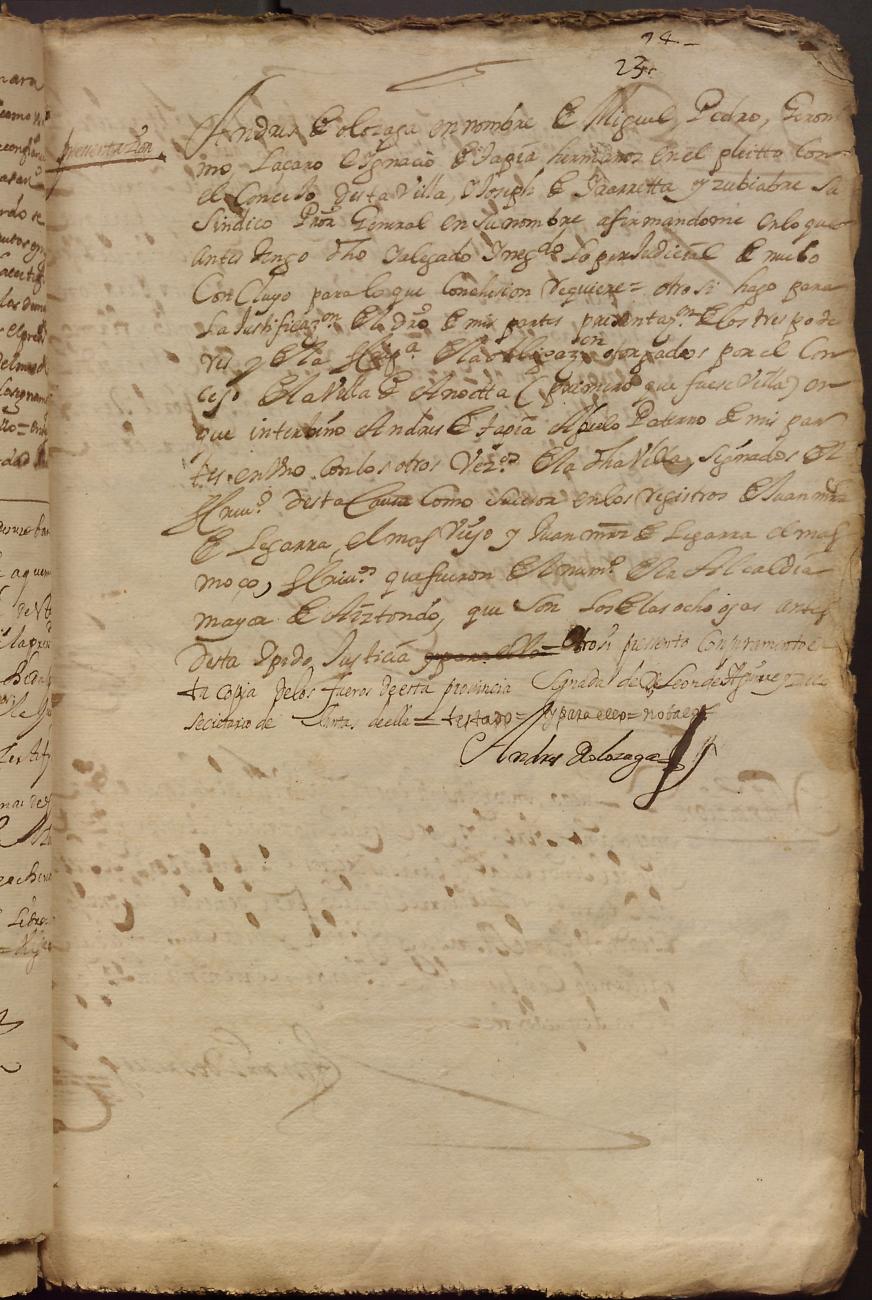 24
23
Presentazion
Andres de olozaga en nombre de Miguel, Pedro, Geroni
mo, Lacaro e Ygnacio de Tapia hermanos en el pleitto Con
el Concejo desta Villa, e Joseph de Yzarretta y zubiabre Su
Sindico Pror General en su nombre afirmandome en lo que
antes tengo dho e alegado Y negdo Lo perJudicial de nuebo
Concluyo para lo que Conclusion requiere = otro si hago para
La Justificazon de la dro de mis partes presentazon de los tres pode
res y de la de la obligazon otorgados por el Con
cejo de la Villa de Anoetta (primero que fuese Villa) en
que interbino Andres de tapia Abuelo Paterno de mis par
tes en Uno Con los otros Vezos de la dha Villa, signados del
essno desta Causa Como sucesor en los registros de Juan mrz
de Legarra, el mas Viejo y Juan mrz de Legarra el mas
moço, que fueron del numo de la Alcaldia
mayor de Aiztondo, que son los de las ocho ojas antes
desta Y pido Justicia y para ello = Otrosi presento Con juramento es
ta copia de los fueros de esta provincia Signada de D. Leon de Aguirre y
secretario de Juntas de ella = testado = y para ello = no bala
Andres de olozaga